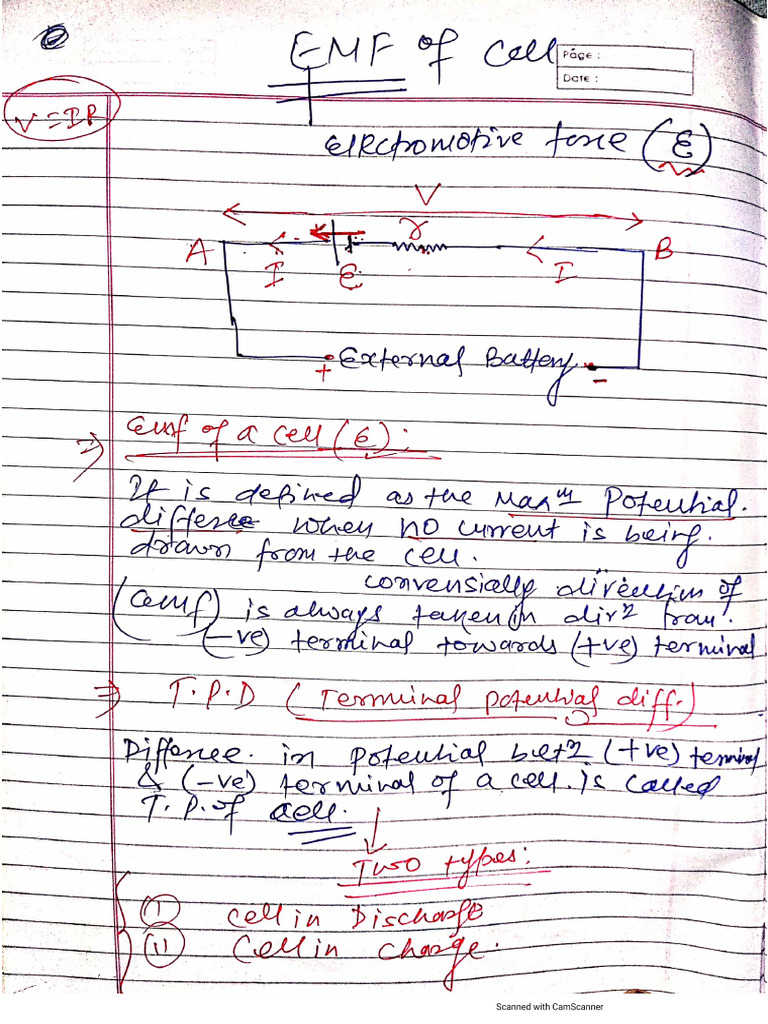 EMF of cell
Page :
Date :
V = IR
Electromotive force (ε)
V
A
I
ε
r
I
B
+
External Battery
-
⇒ Emf of a cell (ε) :
It is defined as the Maxm Potential.
difference when no current is being.
drawn from the cell.
convensially direction of
(emf) is always taken in dirn from.
(-ve) terminal towards (+ve) terminal
⇒ T.P.D (Terminal potential diff.)
Diffence. in potential betn (+ve) terminal
& (-ve) terminal of a cell. is called
T.P. of cell.
Two types:
(I) cell in Discharge
(II) Cell in charge.
Scanned with CamScanner